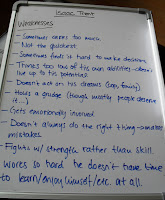 Isaac Trent
Weaknesses
- Sometimes cares too much.
- Not the quickest
- Sometimes finds it hard to make decisions
- Thinks too less of his own abilities - doesn't
live up to his potential
- Doesn't act on his dreams (cop, family)
- Holds a grudge (though mostly people deserve
it...)
- Gets emotionally involved
- Doesn't always do the right thing - makes
mistakes
- Fights w/ strength rather than skill
Works so hard he doesn't have time
to learn/enjoy himself/etc. at all.